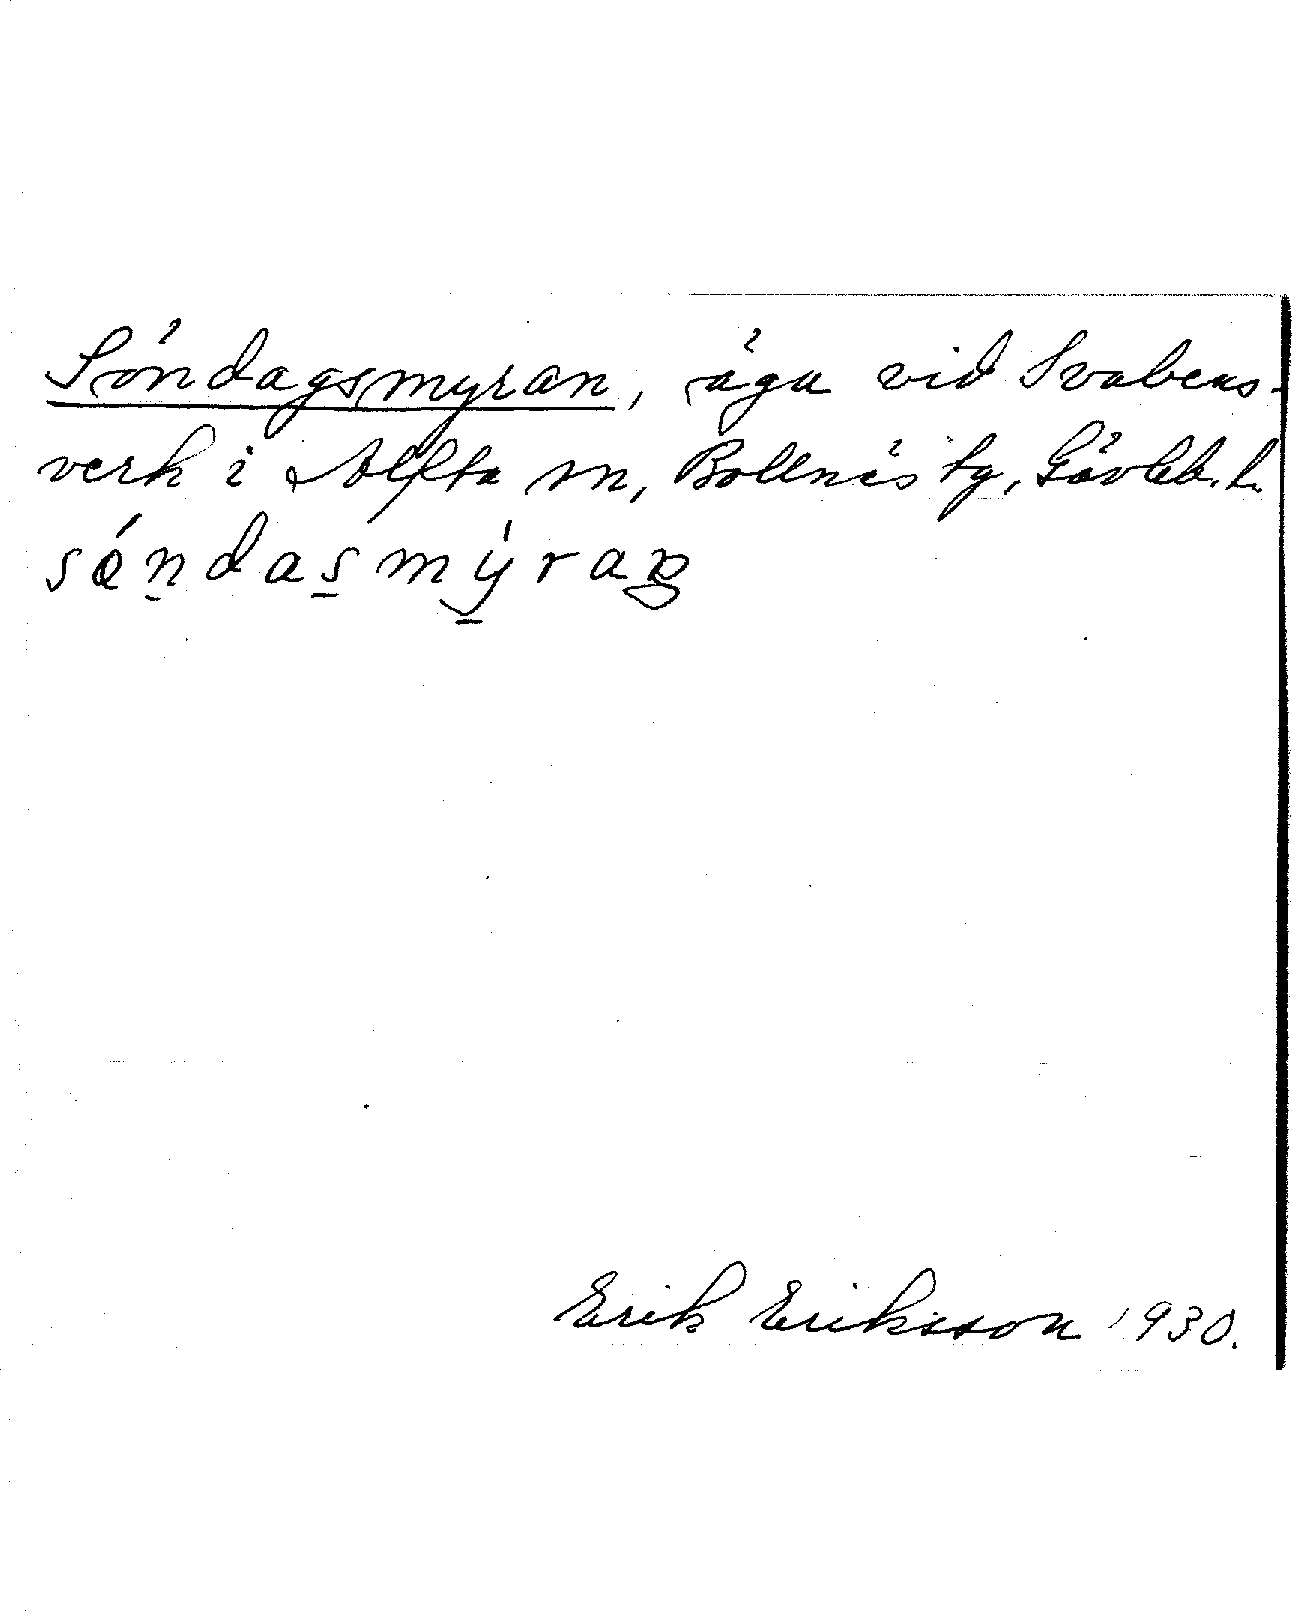 Söndagsmyran, äga vid Svabens-
verk i Alfta sn, Bollnäs tg, Gävleb. l.
sǿn̠das̠mý̠raṉ
Erik Eriksson 1930.